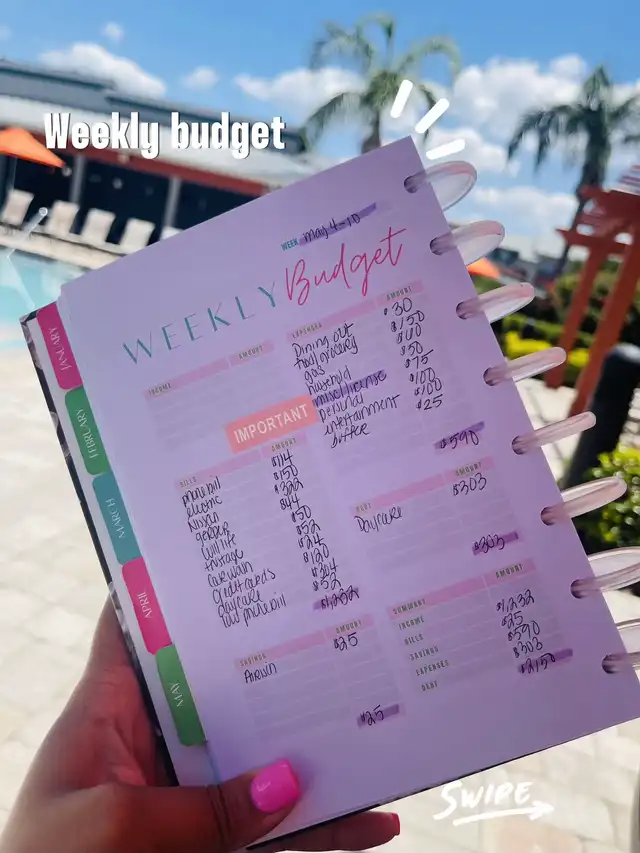 Weekly budget
WEEK May 4-10
WEEKLY Budget
INCOME AMOUNT
EXPENSES AMOUNT
Dining out $30
food grocery $150
gas
household $50
miscellicense $75
personal $100
entertainment $100
buffer $25
$590
IMPORTANT
BILLS AMOUNT
phone bill $114
electric $150
Nissan $322
gerber $44
$50
$52
car wash $24
credit cards $120
daycare
$52
DEBT AMOUNT
Daycare $303
$303
SAVINGS AMOUNT
$25
$25
SUMMARY AMOUNT
INCOME $1,232
BILLS $25
SAVINGS $590
EXPENSES $303
DEBT $2150
JANUARY
FEBRUARY
MARCH
APRIL
MAY
SWIPE